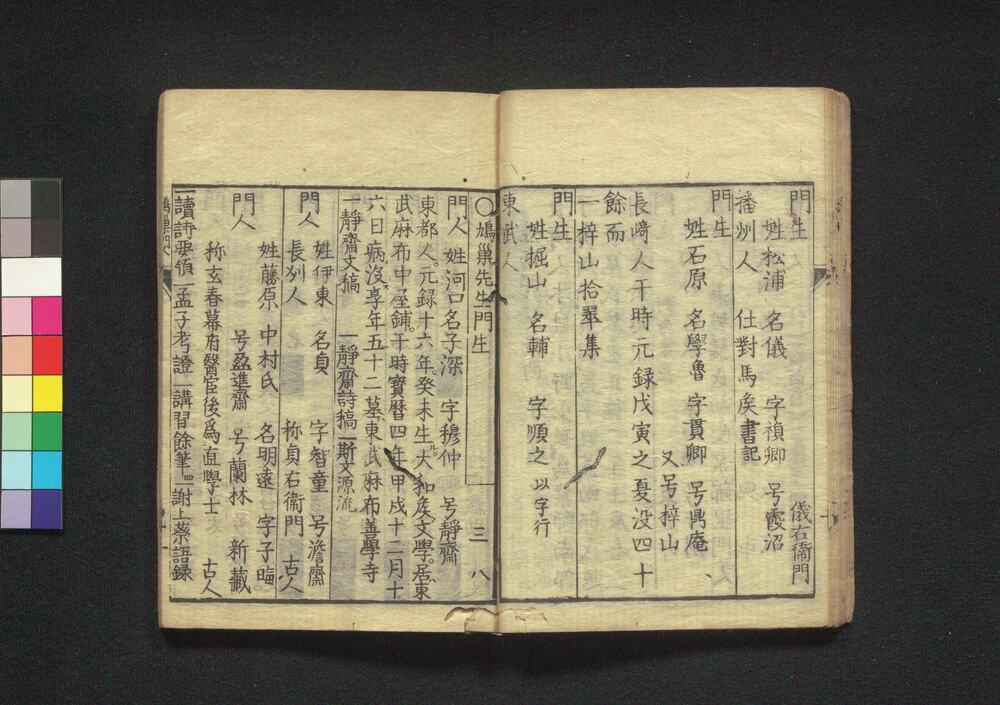 門生
姓松浦 名儀 字禎卿 号霞沼 儀右衞門
播州人 仕對馬矦書記
門生
姓石原 名學魯 字貫卿 号鼎庵、
又号梓山
長﨑人于時元録戊寅之夏没四十
餘而
一梓山拾翠集
門生
姓掘山 名輔 字順之 以字行
東武人
〇鳩巢先生門生 三 八
門人 姓河口名子深 字穆仲 号靜齋
東都人。元録十六年。癸未生ル。大和矦文學。居東
武麻布中屋鋪。于時寳暦四年甲戌十二月十
六日病没享年五十二墓東武麻布善學寺
一靜齋文稿 一靜齋詩稿 一斯文源流
門人 姓伊東 名貞 字智童 号澹齋
長州人 称貞右衞門 古人
姓藤原 中村氏 名明遠 字子晦
門人 号盈進齋 号蘭林 新藏
称玄春幕府醫官後爲直學士 古人
一讀詩要領 一孟子考證 一講習餘筆四 一謝上蔡語録